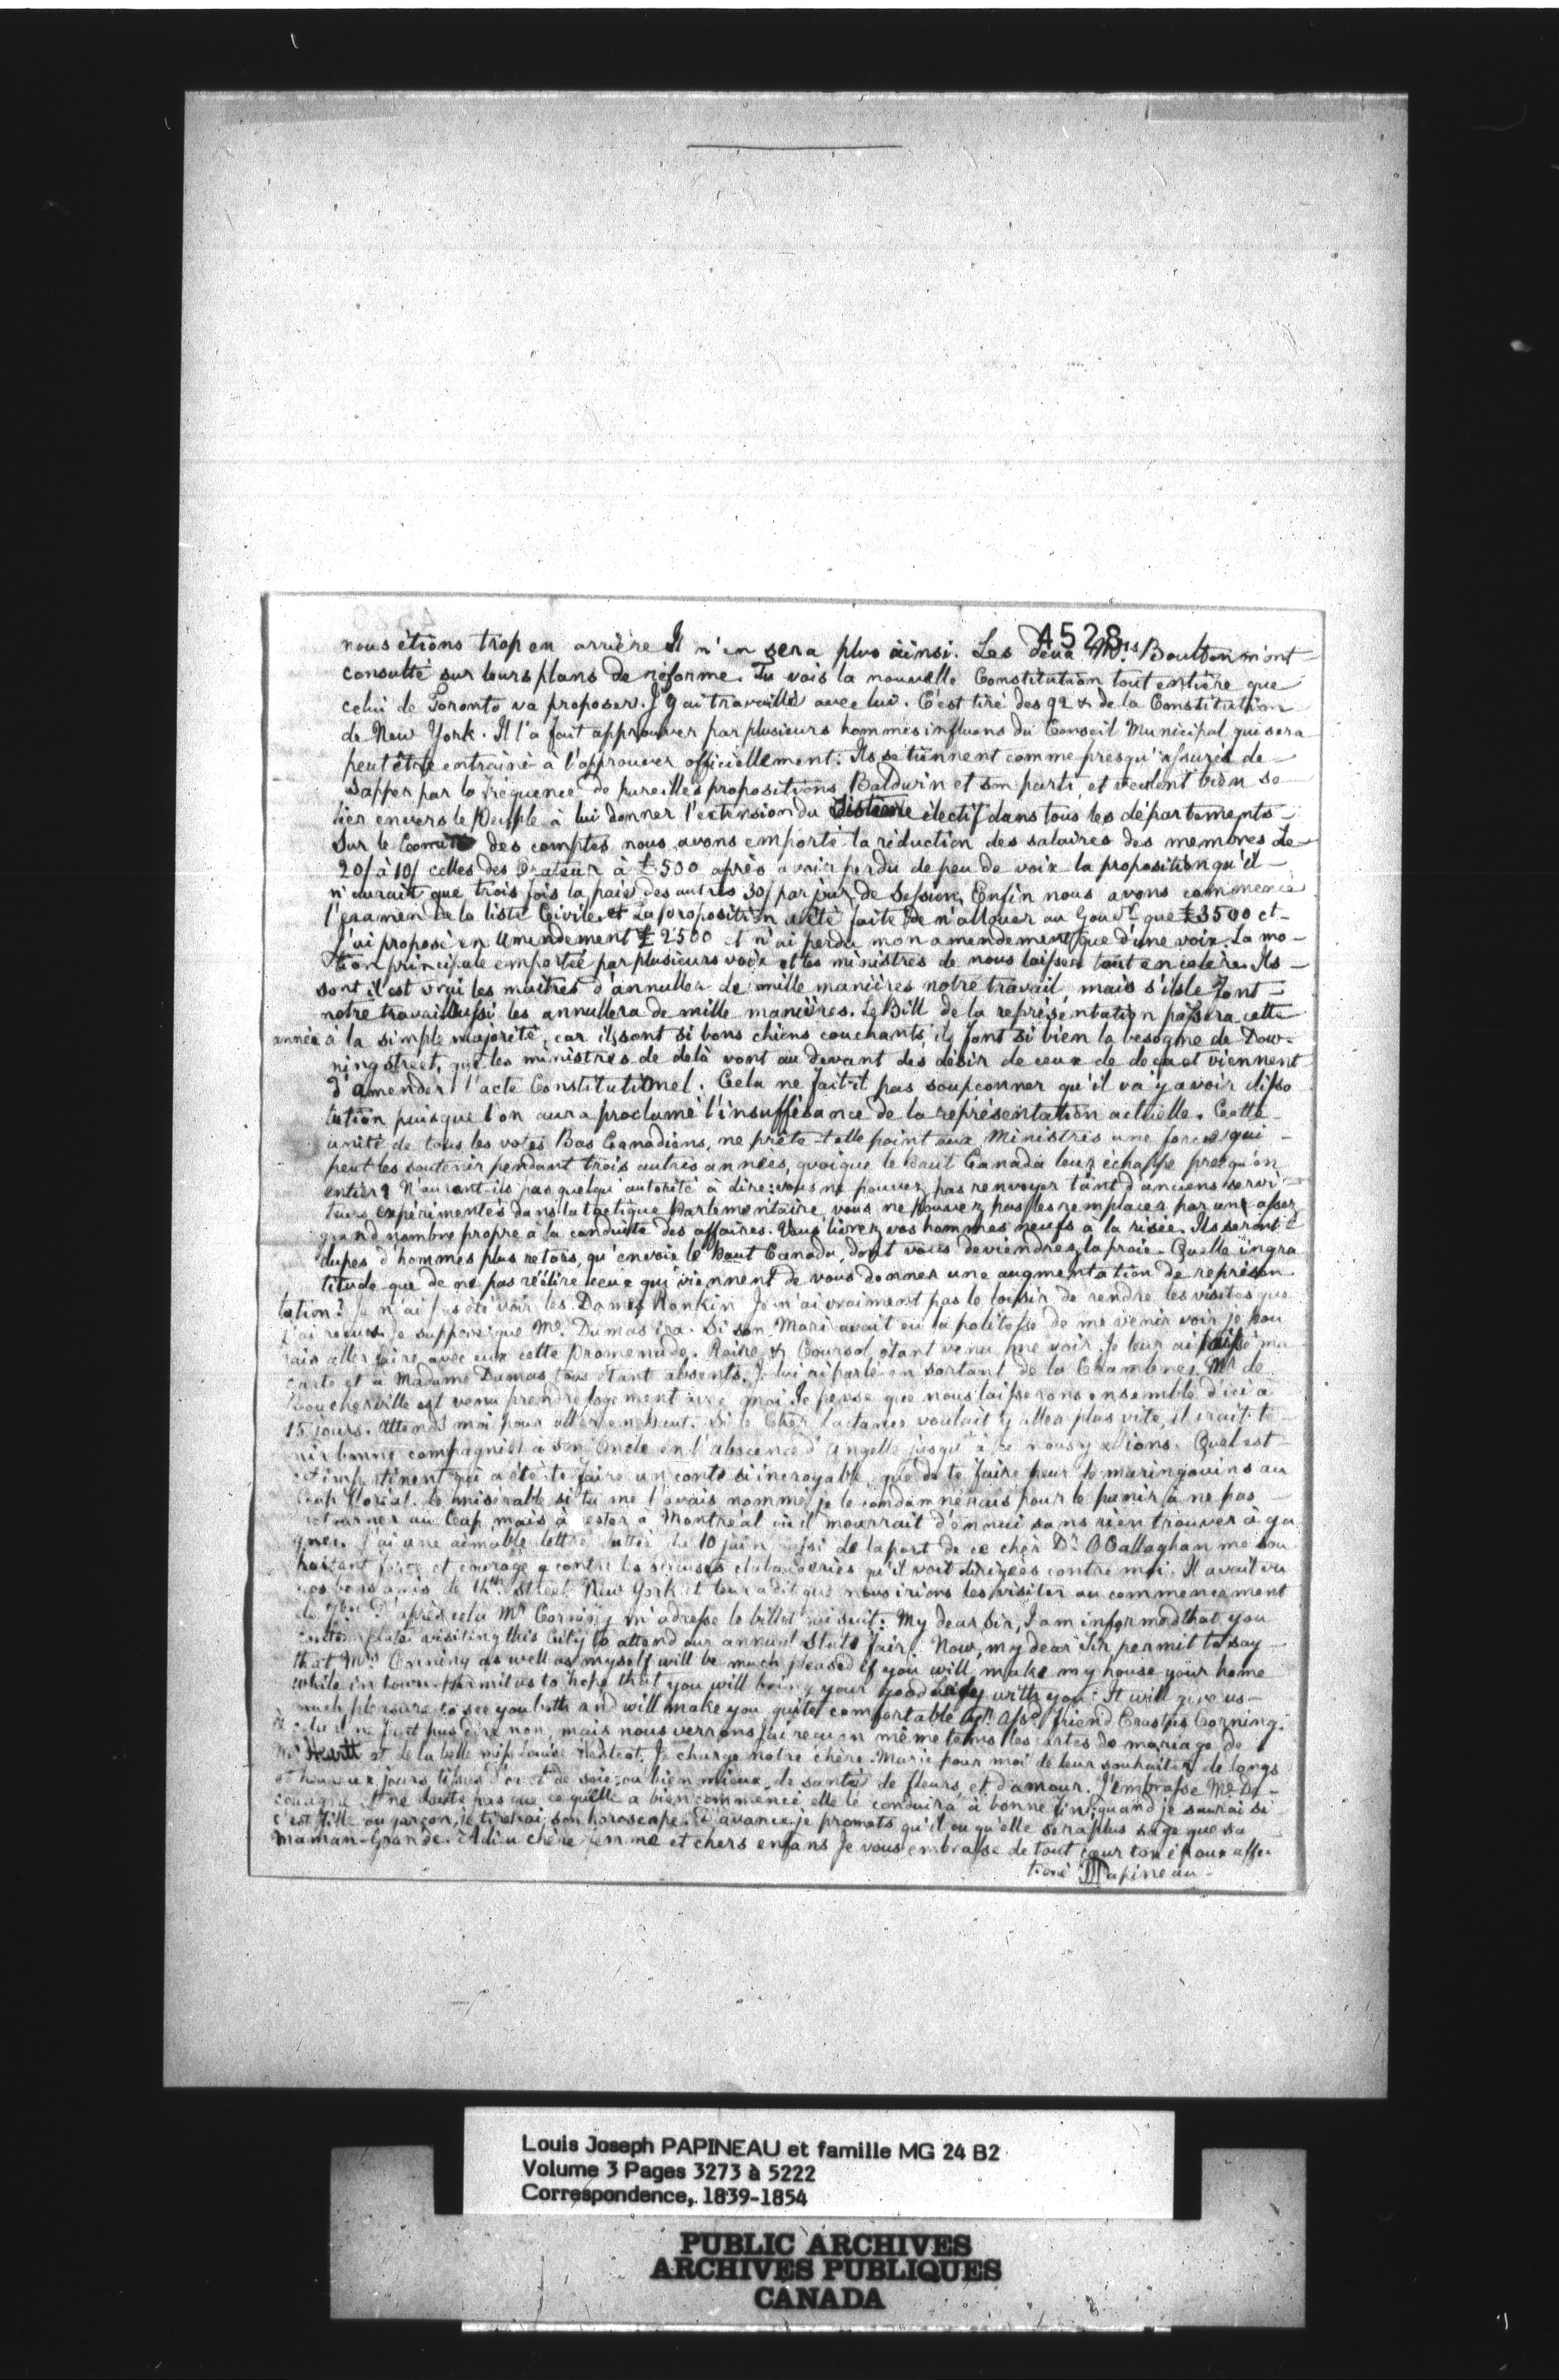 4528
nous étions trop en arrière Il n'en sera plus ainsi. Les deux Mrs Boulton m'ont
consulté sur leurs plans de réforme. Tu vois la nouvelle Constitution tout entière que
celui de Toronto va proposer. J'y ai travaillé avec lui. C'est tiré des 92 & de la Constitution
de New York. Il l'a fait approuver par plusieurs hommes influens du Conseil Municipal qui sera
peut être entrainé à l'approuver officiellement. Ils se tiennent comme presqu'assurés de
sapper par la fréquence de pareilles propositions Baldwin et son parti, et veulent bien se
lier envers le Peuple à lui donner l'extension du Sistème électif dans tous les départements
Sur le Comité des comptes nous avons emporté la réduction des salaires des membres de
20/ à 10/ celles des Orateur à £500 après avoir perdu de peu de voix la proposition qu'il
n'aurait que trois fois la paie des autres 30/ par jour de Session. Enfin nous avons commencé
l'examen de la liste Civile et La proposition a été faite de n'allouer au Gouvr que £3500 et
j'ai proposé en Amendement £2500 et n'ai perdu mon amendement que d'une voix. La mo-
tion principale emportée par plusieurs voix et les ministres de nous laisser tout en colère. Ils
sont il est vrai les maitres d'annuller de mille manières notre travail, mais s'ils le font
notre travail aussi les annullera de mille manières. Le Bill de la représentation passera cette
année à la simple majorité, car ils sont si bons chiens couchants, ils font si bien la besogne de Dow-
ning street, que les ministres de delà vont au devant des désir de ceux de deça et viennent
d'amender l'acte Constitutionel. Cela ne fait-il pas soupçonner qu'il va y avoir disso
lution puisque l'on aura proclamé l'insuffisance de la représentation actuelle. Cette
unité de tous les votes Bas Canadiens, ne prête-t-elle point aux Ministres une force qui
peut les soutenir pendant trois autres années, quoique le haut Canada leur échappe presqu'en
entier? N'auront-ils pas quelqu'autorité à dire: vous ne pouvez pas renvoyer tant d'anciens servi-
teurs expérimentés dans la tactique Parlementaire, vous ne pouvez pas les remplacer par un assez
grand nombre propre à la conduite des affaires. Vous livrez vos hommes neufs à la risée. Ils seront
dupes d'hommes plus retors, qu'envoie le haut Canada, dont vous deviendrez la proie. Quelle ingra
titude que de ne pas réélire ceux qui viennent de vous donner une augmentation de représen
tation? Je n'ai pas été voir les Dames Rankin Je n'ai vraiment pas le loisir de rendre les visites que
j'ai reçues. Je suppose que Me. Dumas ira. Si son Mari avait eu la politesse de me venir voir je pou
rais aller faire avec eux cette promenade. & Coursol étant venu me voir. Je leur ai laissé ma
carte et à Madame Dumas tous étant absents. Je lui ai parlé en sortant de la Chambre. Mr de
Boucherville est venu prendre logement avec moi Je pense que nous laisserons ensemble d'ici à
15 jours. Attends moi pour aller en haut. Si le Cher Lactance voulait y aller plus vite, il irait te
nir bonne compagnie à son Oncle en l'abscence d'Angelle jusqu'à ce nous y allions. Quel est
cet impertinent qui a été te faire un conte si incroyable que de te faire peur de maringouins au
Cap Le misérable si tu me l'avais nommé je le condamnerais pour le punir à ne pas
retourner au Cap, mais à rester à Montréal où il mourrait d'ennui sans rien trouver à ga
gner. J'ai une aimable lettre dattée du 10 juin de la part de ce cher Dr OCallaghan me sou
haitant force et courage contre les clabauderies qu'il voit dirigées contre moi. Il avait vu
nos bons amis de street New York et leur a dit que nous irions les visiter au commencement
de D'après cela Mr Corning m'adresse le billet qui suit: My dear Sir, I am informed that you
contemplate visiting this City to attend our annual State fair. Now, my dear Sir permit to say
that Mrs Corning as well as myself will be much pleased if you will make my house your home
while in town. Permit us to hope that you will bring your good Lady with you. It will give us
much pleasure to see you both and will make you quite comfortable yr. affd. friend Erastus Corning.
À cela il ne faut pas dire non, mais nous verrons. J'ai reçu en même tems les cartes de mariage de
Mr et de la belle miss Louise Je charge notre chère Marie pour moi de leur souhaiter de longs
et heureux jours, tissus d'or et de soie, ou bien mieux de santé de fleurs et d'amour. J'embrasse Me
et ne doute pas que ce qu'elle a bien commencé elle le conduira à bonne fin, quand je saurai si
c'est fille ou garçon, je tirerai son horoscope. D'avance je promets qu'il ou qu'elle sera plus sage que sa
Maman-Grande. Adieu chère femme et chers enfans Je vous embrasse de tout cœur ton époux affec
tioné LJPapineau
Louis Joseph PAPINEAU et famille MG 24 B2
Volume 3 Pages 3273 à 5222
Correspondence, 1839-1854
PUBLIC ARCHIVES
ARCHIVES PUBLIQUES
CANADA